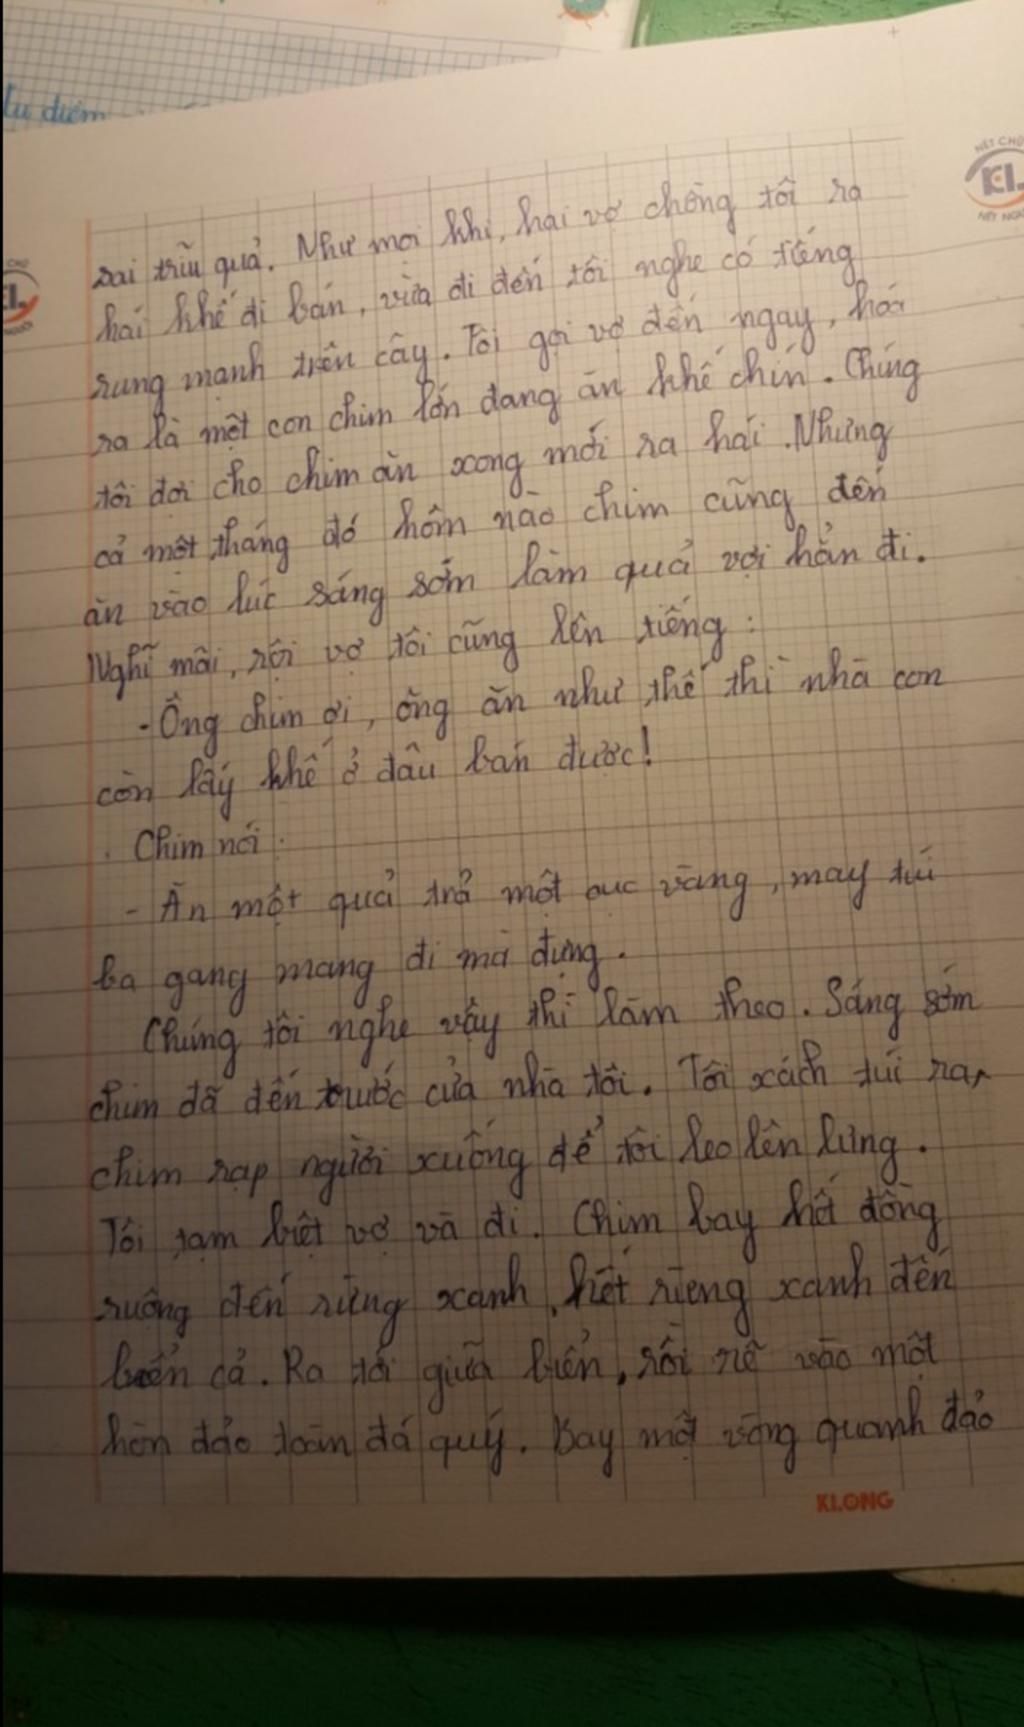 Ưu điểm
NÉT CHỮ
KL
NÉT NGƯỜI
sai trĩu quả. Như mọi khi, hai vợ chồng tôi ra
hái khế đi bán, vừa đi đến tôi nghe có tiếng
rung mạnh trên cây. Tôi gọi vợ đến ngay, hoá
ra là một con chim lớn đang ăn khế chín. Chúng
tôi đợi cho chim ăn xong mới ra hái. Nhưng
cả một tháng đó hôm nào chim cũng đến
ăn vào lúc sáng sớm làm quả vợi hẳn đi.
Nghĩ mãi, rồi vợ tôi cũng lên tiếng:
- Ông chim ơi, ông ăn như thế thì nhà con
còn lấy khế ở đâu bán được!
Chim nói:
- Ăn một quả trả một cục vàng, may túi
ba gang mang đi mà đựng.
Chúng tôi nghe vậy thì làm theo. Sáng sớm
chim đã đến trước cửa nhà tôi. Tôi xách túi ra,
chim rạp người xuống để tôi leo lên lưng.
Tôi tạm biệt vợ và đi. Chim bay hết đồng
ruộng đến rừng xanh, hết rừng xanh đến
biển cả. Ra tới giữa biển, rồi rẽ vào một
hòn đảo toàn đá quý. Bay một vòng quanh đảo
KLONG